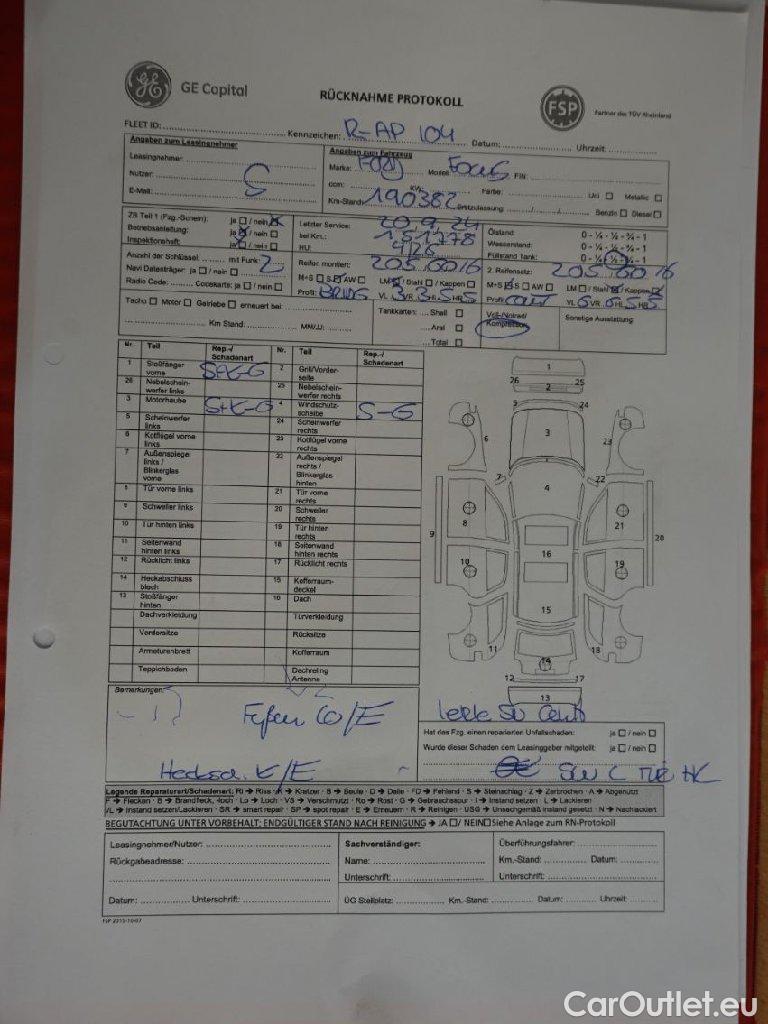 GE Capital
RÜCKNAHME PROTOKOLL
FSP
Partner des TÜV Rheinland
FLEET ID: Kennzeichen: R-AP 104 Datum: Uhrzeit:
Angaben zum Leasingnehmer
Leasingnehmer:
Nutzer:
E-Mail:
Angaben zum Fahrzeug
Marke: Ford Modell: Focus FIN:
ccm: KW: Farbe: Uni Metallic
Km-Stand: 190382 Erstzulassung: Benzin Diesel
ZB Teil 1 (Fzg.-Schein): ja / nein
Betriebsanleitung: ja / nein
Inspektionsheft: ja / nein
Letzter Service:
bei Km.: 151778
HU:
Ölstand: 0 - ¼ - ½ - ¾ - 1
Wasserstand: 0 - ¼ - ½ - ¾ - 1
Füllstand Tank: 0 - ¼ - ½ - ¾ - 1
Anzahl der Schlüssel: mit Funk: 2
Navi Datenträger: ja / nein
Radio Code: Codekarte: ja / nein
Reifen montiert: 205.60.16
M+S S AW LM / Stahl / Kappen
Profil: VL 3 VR 3 HL 3.5 HR 5
2. Reifensatz: 205.60.16
M+S S AW LM / Stahl / Kappen
Profil: VL 6 VR 6 HL 5 HR 5
Tacho Motor Getriebe erneuert bei:
Km Stand: MM/JJ:
Tankkarten: Shell
Aral
Total
Voll-/Notrad/
Kompressor
Sonstige Ausstattung:
Nr. Teil Rep.-/ Schadenart Nr. Teil Rep.-/ Schadenart
1 Stoßfänger vorne S+K-G 2 Grill/Vorderseite
26 Nebelscheinwerfer links 25 Nebelscheinwerfer rechts
3 Motorhaube S+K-G 4 Windschutzscheibe S-G
5 Scheinwerfer links 24 Scheinwerfer rechts
6 Kotflügel vorne links 23 Kotflügel vorne rechts
7 Außenspiegel links / Blinkerglas vorne 22 Außenspiegel rechts / Blinkerglas hinten
8 Tür vorne links 21 Tür vorne rechts
9 Schweller links 20 Schweller rechts
10 Tür hinten links 19 Tür hinter rechts
11 Seitenwand hinten links 18 Seitenwand hinten rechts
12 Rücklicht links 17 Rücklicht rechts
14 Heckabschlussblech 15 Kofferraumdeckel
13 Stoßfänger hinten 16 Dach
Dachverkleidung Türverkleidung
Vordersitze Rücksitze
Armaturenbrett Kofferraum
Teppichboden Dachreling Antenne
1
26 25
2
5 24
6 3 23
7 22
4
8 21
9 28
16
10 19
15
11 18
14
12 17
13
Bemerkungen:
Hat das Fzg. einen reparierten Unfallschaden: ja / nein
Wurde dieser Schaden dem Leasinggeber mitgeteilt: ja / nein
Legende Reparaturart/Schadenart: RI → Riss K → Kratzer B → Beule D → Delle FD → Fehlend S → Steinschlag Z → Zerbrochen A → Abgenutzt
F → Flecken B → Brandfleck, -loch Lo → Loch VS → Verschmutzt Ro → Rost G → Gebrauchsspur I → Instand setzen L → Lackieren
I/L → Instand setzen/Lackieren SR → smart repair SP → spot repair E → Erneuern R → Reinigen USG → Unsachgemäß instand gesetzt N → Nachlackiert
BEGUTACHTUNG UNTER VORBEHALT; ENDGÜLTIGER STAND NACH REINIGUNG → JA / NEIN Siehe Anlage zum RN-Protokoll
Leasingnehmer/Nutzer:
Rückgabeadresse:
Datum: Unterschrift:
Sachverständiger:
Name:
Unterschrift:
Überführungsfahrer:
Km.-Stand: Datum:
Unterschrift:
ÜG Stellplatz: Km.-Stand: Datum: Uhrzeit:
CarOutlet.eu